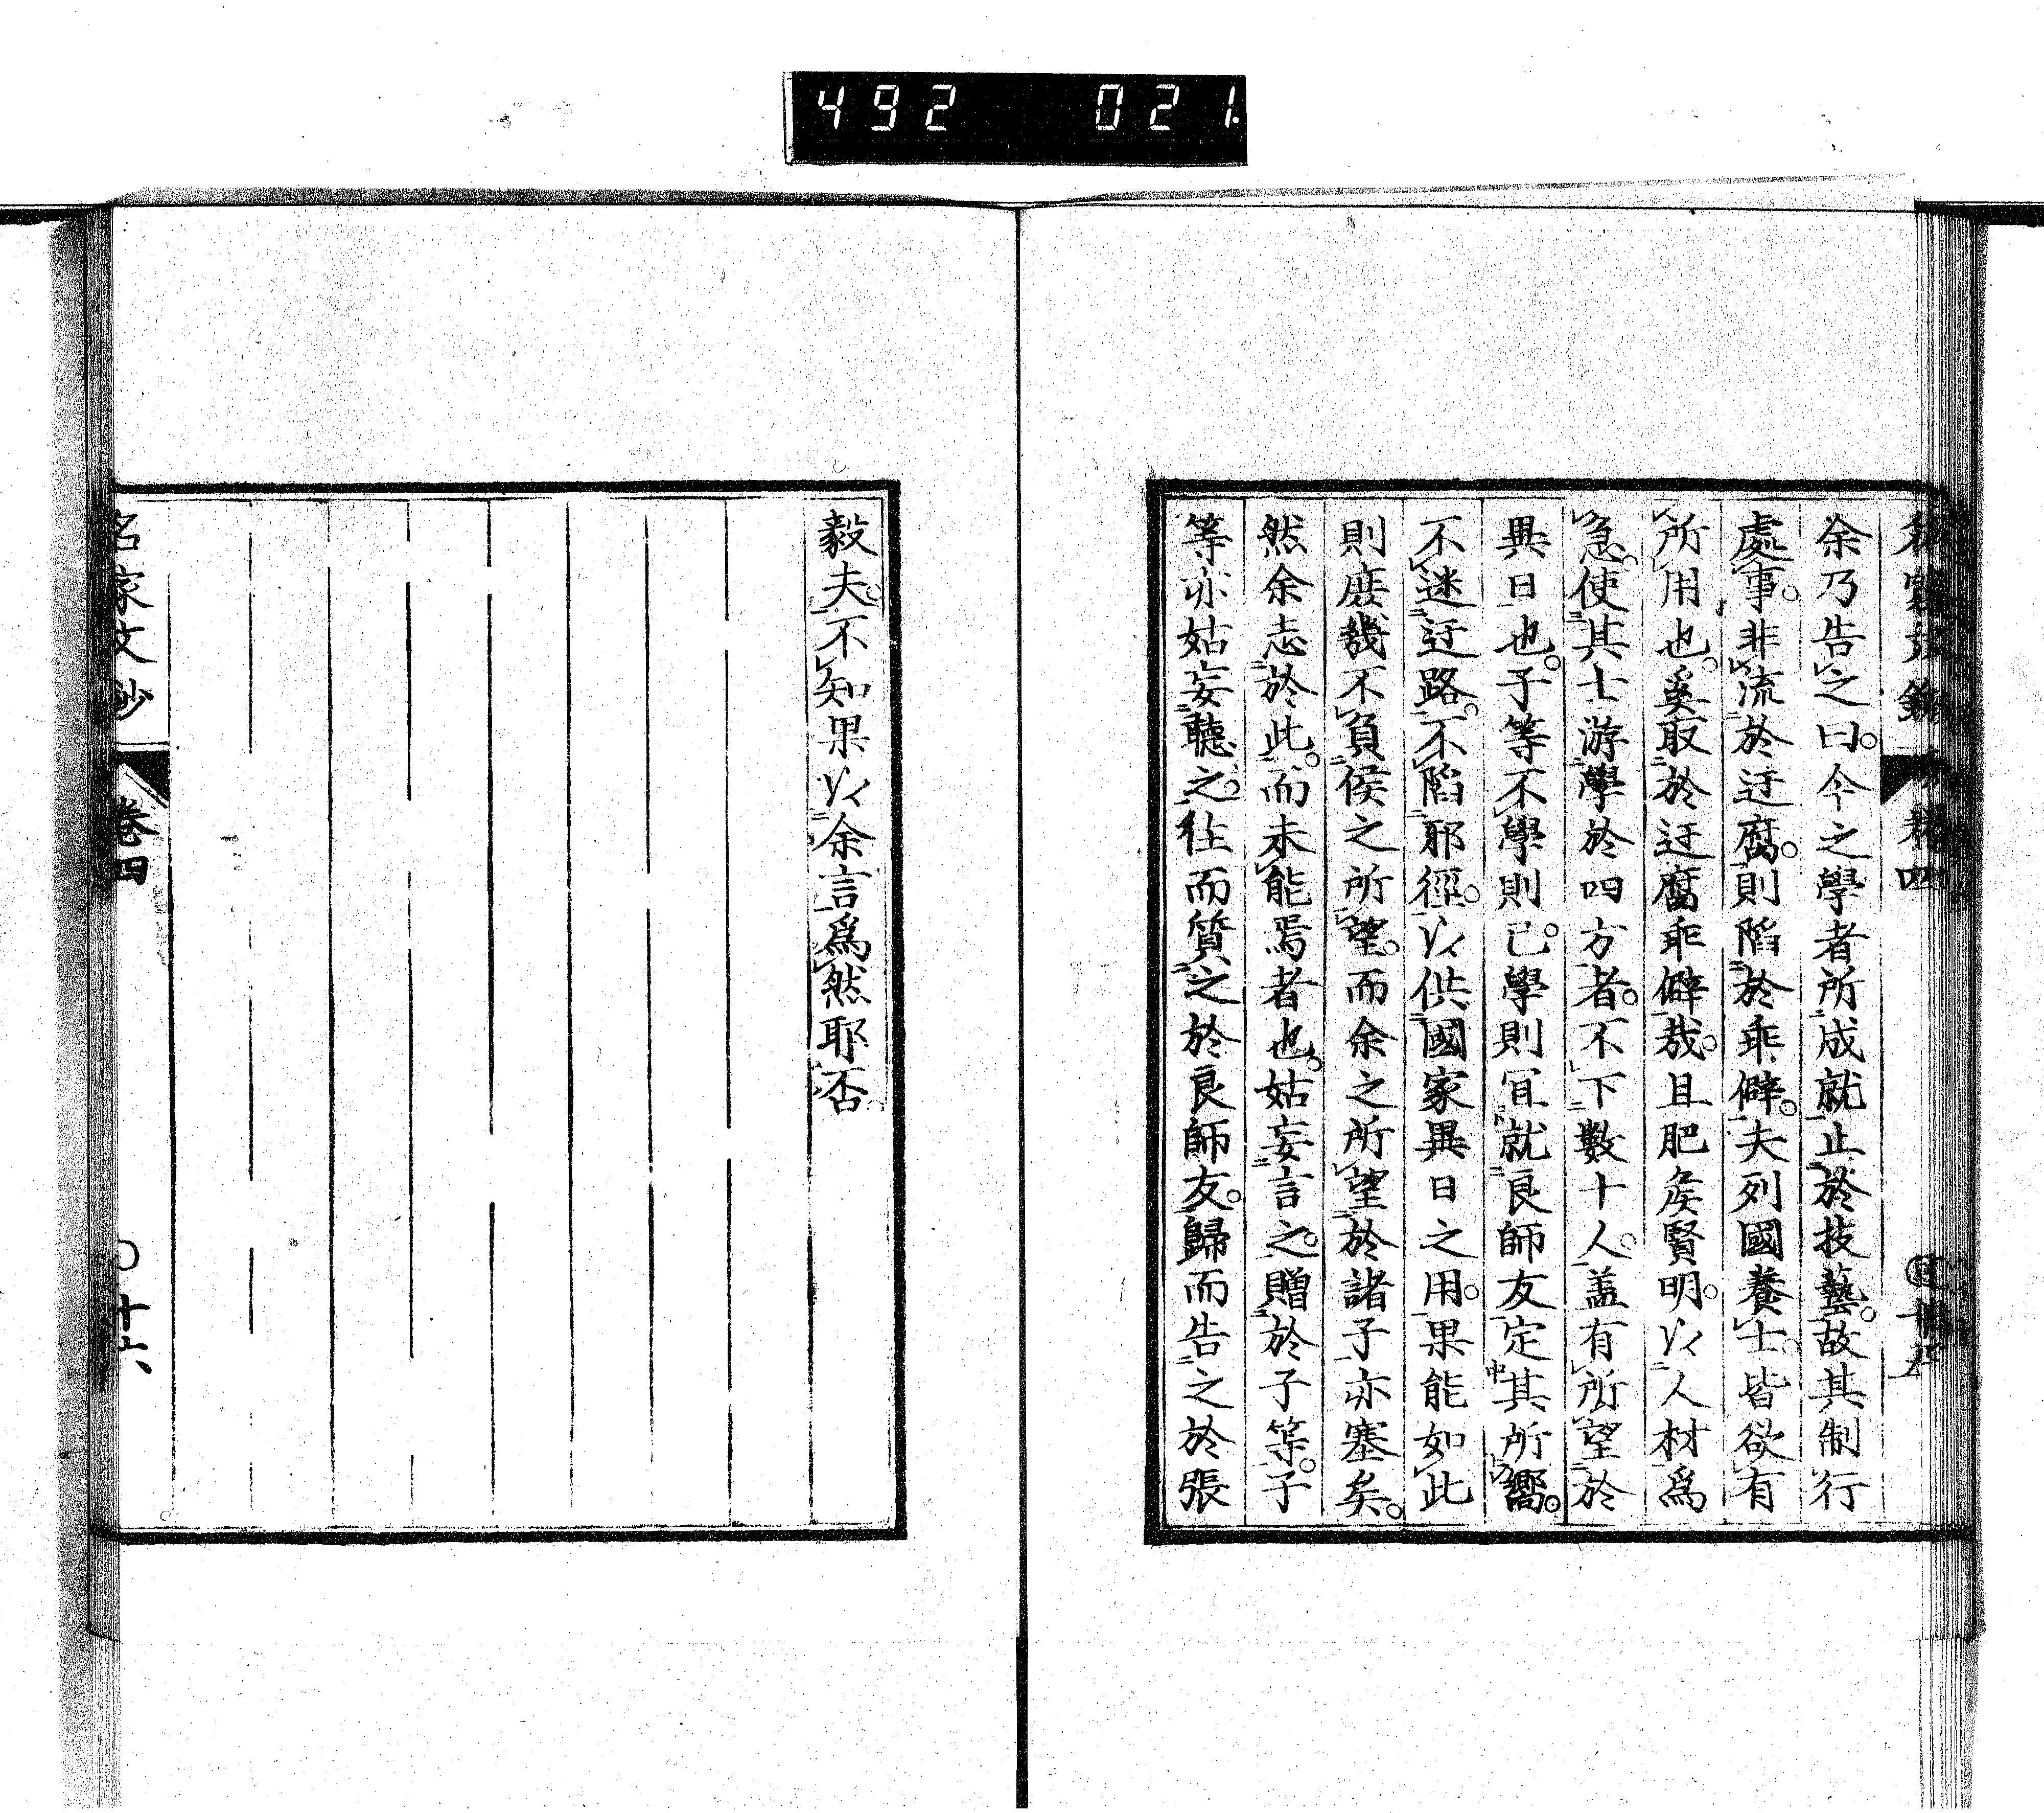 492 021.
余乃告之曰。今之學者所成就止於技藝。故其制行
處事。非流於迂腐。則陷於乖僻。夫列國養士。皆欲有
所用也。奚取於迂腐乖僻哉。且肥矦賢明。以人材爲
急。使其士游學於四方者。不下數十人。盖有所望於
異日也。子等不學則已。學則宜就良師友定其所嚮。
不迷迂路。不陷邪徑。以供國家異日之用。果能如此
則庶幾不負侯之所望。而余之所望於諸子亦塞矣。
然余志於此。而未能焉者也。姑妄言之。贈於子等。子
等亦姑妄聽之。往而質之於良師友。歸而告之於張
毅夫。不知果以余言爲然耶否。
名家文鈔 卷四 〇十六